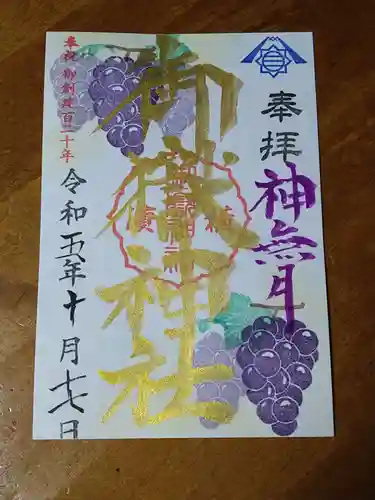 奉拝
神無月
御嶽神社
奉祝 御創建百二十年
令和五年十月十七日